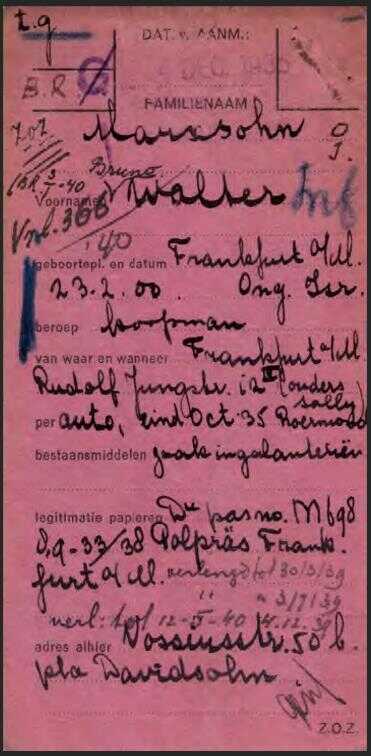 t.g
DAT. v. AANM.:
B.R
4 DEC. 1935
FAMILIENAAM
Marxsohn
Bruno
Voornamen Walter Inf
B.R. 3/I-40
Vnl. 366
'40
geboortepl. en datum Frankfurt a/M.
23.2.00. Ong. Isr.
beroep koopman
van waar en wanneer Frankfurt a/M.
Rudolf Jungstr. 12 II (ouders
Sally)
per auto, eind Oct 35 Roermond
bestaansmiddelen zaak in galanteriën
legitimatie papieren Du pas no. M698
8.9-33/38 Polpräs Frank-
furt a/M. verlengd tot 30/3/39
" " 3/7/39
verl: tot 12-II-40 4.12.39
adres alhier Vossiusstr. 50 b.
p/a Davidsohn
Z.O.Z.